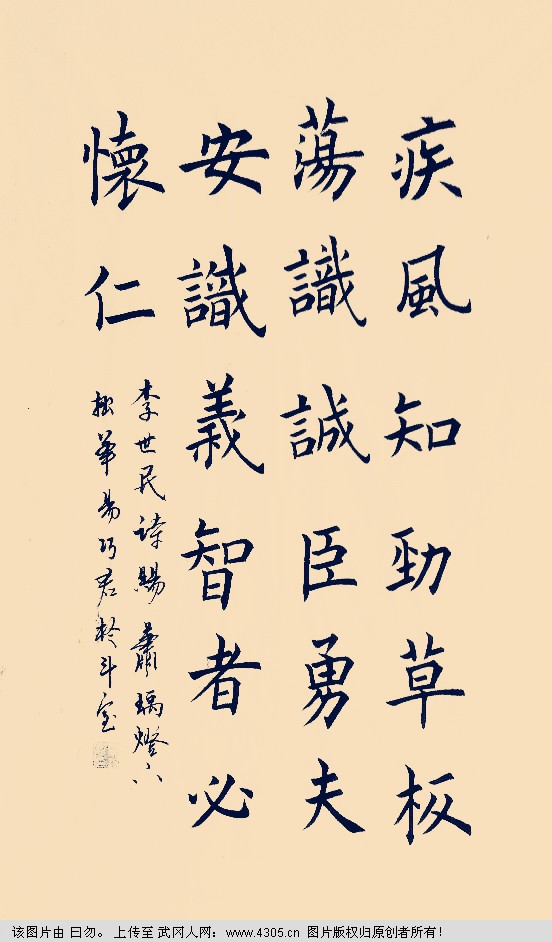 疾風知勁草板
蕩識誠臣勇夫
安識義智者必
懷仁
李世民詩賜蕭瑀燈下
拙筆易巧君於斗室
该图片由 曰勿。 上传至 武冈人网：www.4305.cn 图片版权归原创者所有！